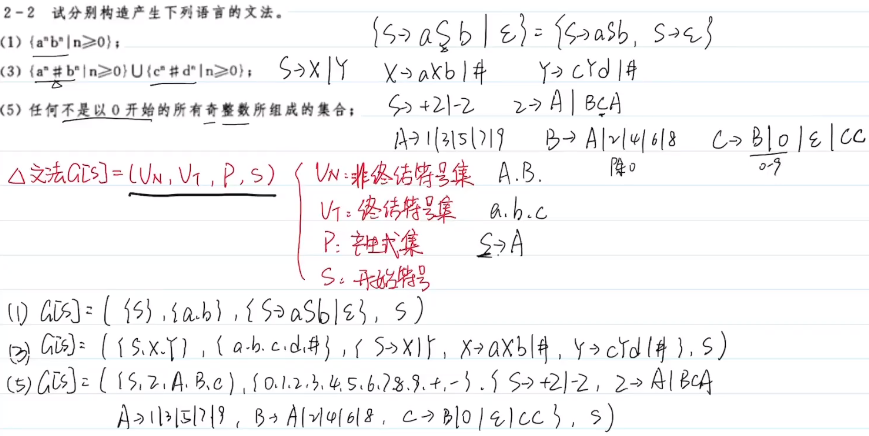 2-2 试分别构造产生下列语言的文法。
(1) {aⁿbⁿ|n≥0};
{S→aSb|ε}={S→aSb, S→ε}
(3) {aⁿ#bⁿ|n≥0}∪{cⁿ#dⁿ|n≥0};
S→X|Y X→aXb|# Y→cYd|#
(5) 任何不是以0开始的所有奇整数所组成的集合;
S→+Z|-Z Z→A|BCA
A→1|3|5|7|9 B→A|2|4|6|8 C→B|0|ε|CC
除0 0-9
△文法G[S]=(U_N, U_T, P, S)
U_N:非终结符号集 A.B.
U_T:终结符号集 a.b.c
P:产生式集 S→A
S:开始符号
(1) G[S]=({S},{a.b},{S→aSb|ε}, S)
(3) G[S]=({S.X.Y},{a.b.c.d.#},{S→X|Y, X→aXb|#, Y→cYd|#}, S)
(5) G[S]=({S,Z,A.B.C},{0.1.2.3.4.5.6.7.8.9.+.-}.{S→+Z|-Z, Z→A|BCA
A→1|3|5|7|9, B→A|2|4|6|8, C→B|0|ε|CC}, S)